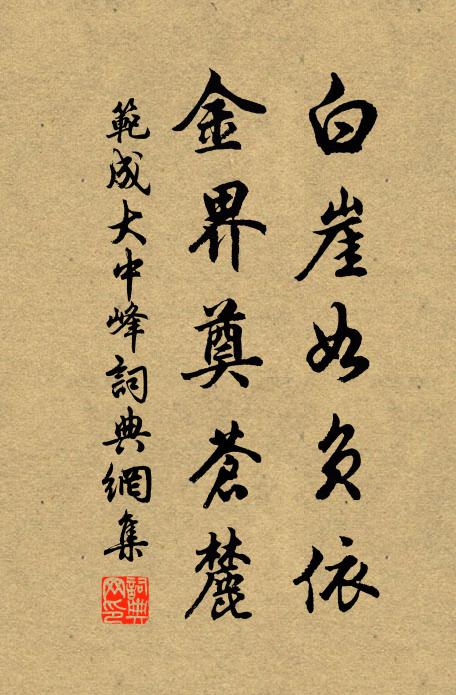 白崖如負依
金界奠蒼麓
範成大中峰詞典網集
詞典網印